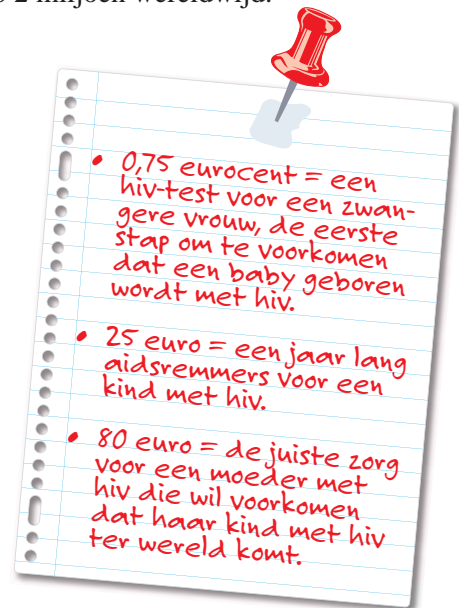 2 miljoen wereldwijd.
• 0,75 eurocent = een
hiv-test voor een zwan-
gere vrouw, de eerste
stap om te voorkomen
dat een baby geboren
wordt met hiv.
• 25 euro = een jaar lang
aidsremmers voor een
kind met hiv.
• 80 euro = de juiste zorg
voor een moeder met
hiv die wil voorkomen
dat haar kind met hiv
ter wereld komt.